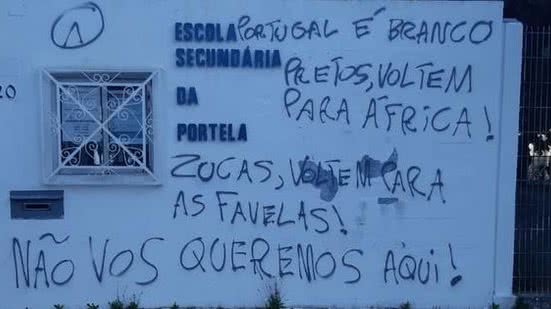 ESCOLA PORTUGAL É BRANCO
SECUNDÁRIA
PRETOS, VOLTEM
DA
PARA ÁFRICA!
PORTELA
20
ZUCAS, VOLTEM PARA
AS FAVELAS!
NÃO VOS QUEREMOS AQUI!